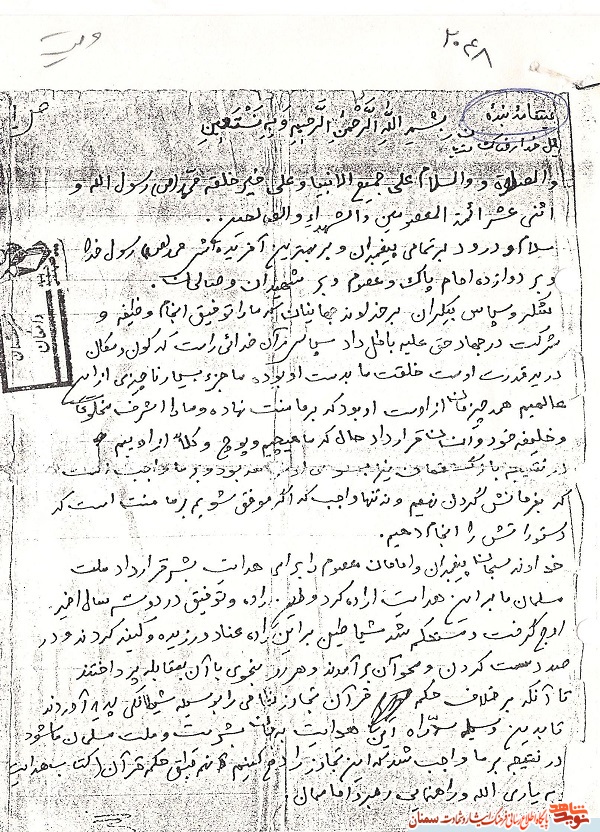 وصیت
۲۰۴۸
بسم الله الرحمن الرحیم و به نستعین
والصلاة و والسلام علی جمیع الانبیا و علی خیر خلقه محمد (ص) رسول الله و
اثنی عشر ائمة المعصومین والشهداء والصالحین ..
سلام و درود بر تمامی پیغمبران و بر بهترین آفریده اش محمد (ص) رسول خدا
و بر دوازده امام پاک و معصوم و بر شهیدان و صالحان .
شکر و سپاس بیکران بر خداوند جهانیان که ما را توفیق انجام وظیفه و
شرکت در جهاد حق علیه باطل داد سپاس از آن خدائی راست که کون و مکان
در ید قدرت اوست خلقت ما بدست او بوده ما جزء بسیار ناچیزی از این
عالمیم همه چیزمان از اوست او بود که بر ما منت نهاده و ما را اشرف مخلوقات
و خلیفه خود و انسان قرار داد حال که ما هیچیم و پوچ و کلاً از اوییم
در نتیجه بازگشتمان نیز بسوی او خواهد بود و بر ما واجب است
که بفرمانش گردن نهیم و نه تنها واجب که اگر موفق شویم بر ما منت است که
دستوراتش را انجام دهیم.
خداوند سبحان پیغمبران و امامان معصوم را برای هدایت بشر قرار داد ملت
مسلمان ما بر این هدایت اراده کرد و این اراده و توفیق در دو سه سال اخیر
اوج گرفت و مستحکم شد شیاطین بر این راه عناد ورزیده و کینه کردند و در
صدد سست کردن و محو آن برآمدند و هر یک بنحوی با آن بمقابله پرداختند
تا آنکه بر خلاف حکم قرآن تجاوز نظامی را بوسیله شیطانکی پدید آوردند
تا بدین وسیله سد راه این هدایت به بشریت و ملت مسلمان ما شود
در نتیجه بر ما واجب شد که این تجاوز را دفع کنیم طبق حکم قرآن (کتاب هدایت)
به یاری الله و راهنمایی رهبر و امامان.
نوید شاهد
پایگاه اطلاع رسانی فرهنگ ایثار و شهادت سمنان